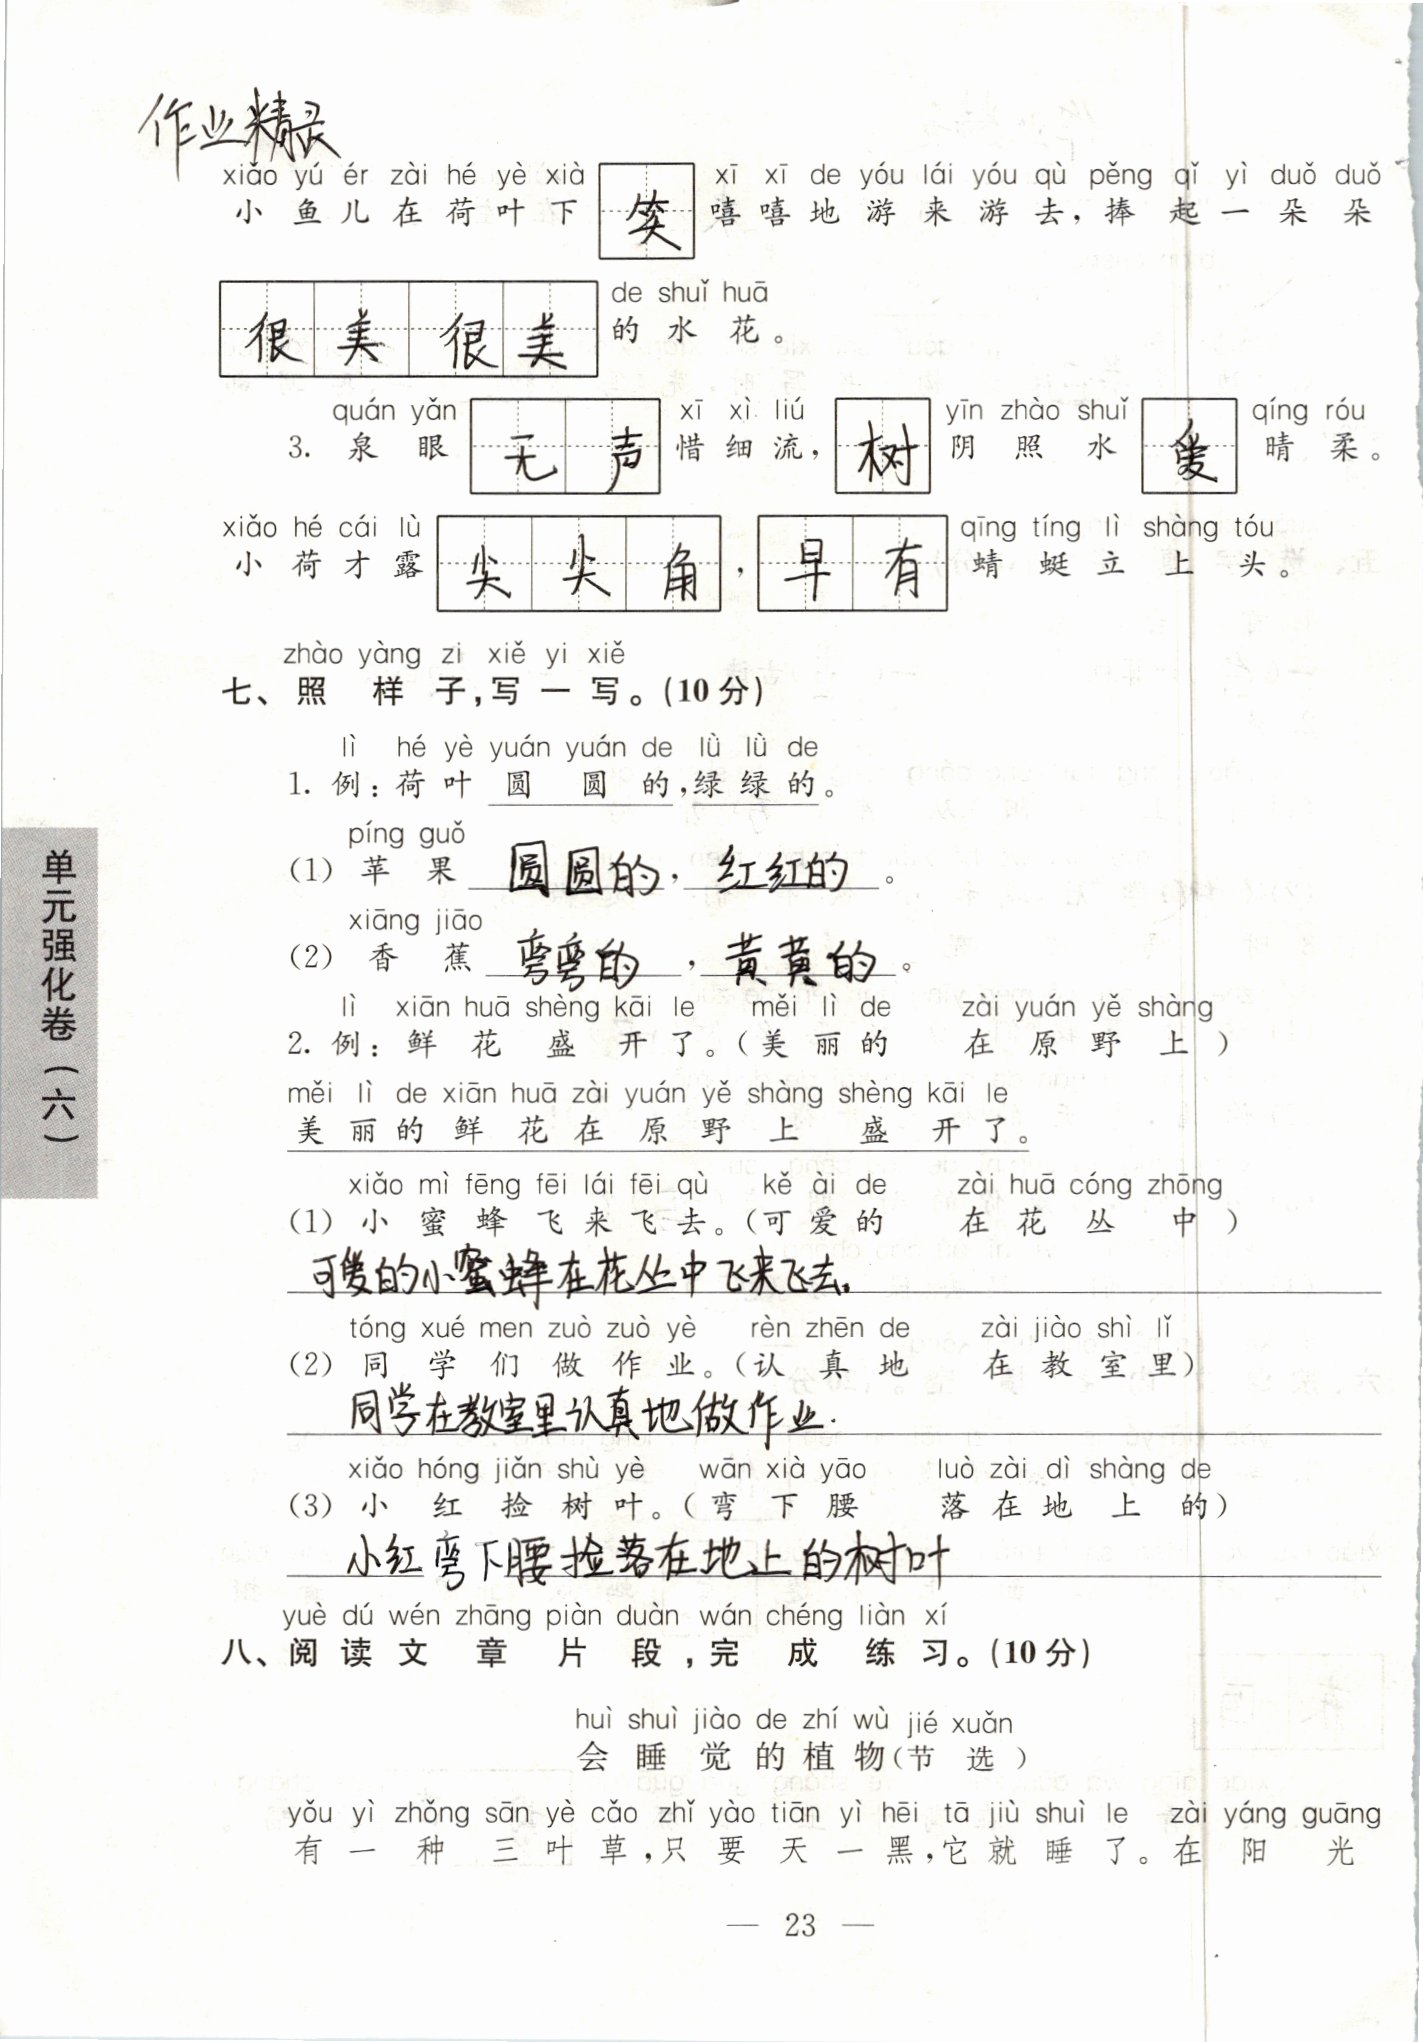 作业精灵
xiǎo yú ér zài hé yè xià xī xī de yóu lái yóu qù pěng qǐ yì duǒ duǒ
小鱼儿在荷叶下笑嘻嘻地游来游去，捧起一朵朵
de shuǐ huā
很美很美的水花。
quán yǎn xī xì liú yīn zhào shuǐ qíng róu
3. 泉眼无声惜细流，树阴照水爱晴柔。
xiǎo hé cái lù qīng tíng lì shàng tóu
小荷才露尖尖角，早有蜻蜓立上头。
zhào yàng zi xiě yi xiě
七、照样子，写一写。(10分)
lì hé yè yuán yuán de lǜ lǜ de
1. 例：荷叶圆圆的，绿绿的。
píng guǒ
(1) 苹果 圆圆的，红红的。
xiāng jiāo
(2) 香蕉 弯弯的，黄黄的。
lì xiān huā shèng kāi le měi lì de zài yuán yě shàng
2. 例：鲜花盛开了。(美丽的 在原野上)
měi lì de xiān huā zài yuán yě shàng shèng kāi le
美丽的鲜花在原野上盛开了。
xiǎo mì fēng fēi lái fēi qù kě ài de zài huā cóng zhōng
(1) 小蜜蜂飞来飞去。(可爱的 在花丛中)
可爱的小蜜蜂在花丛中飞来飞去.
tóng xué men zuò zuò yè rèn zhēn de zài jiào shì lǐ
(2) 同学们做作业。(认真地 在教室里)
同学在教室里认真地做作业.
xiǎo hóng jiǎn shù yè wān xià yāo luò zài dì shàng de
(3) 小红捡树叶。(弯下腰 落在地上的)
小红弯下腰捡落在地上的树叶
yuè dú wén zhāng piàn duàn wán chéng liàn xí
八、阅读文章片段，完成练习。(10分)
huì shuì jiào de zhí wù jié xuǎn
会睡觉的植物(节选)
yǒu yì zhǒng sān yè cǎo zhǐ yào tiān yì hēi tā jiù shuì le zài yáng guāng
有一种三叶草，只要天一黑，它就睡了。在阳光
单元强化卷(六)
— 23 —